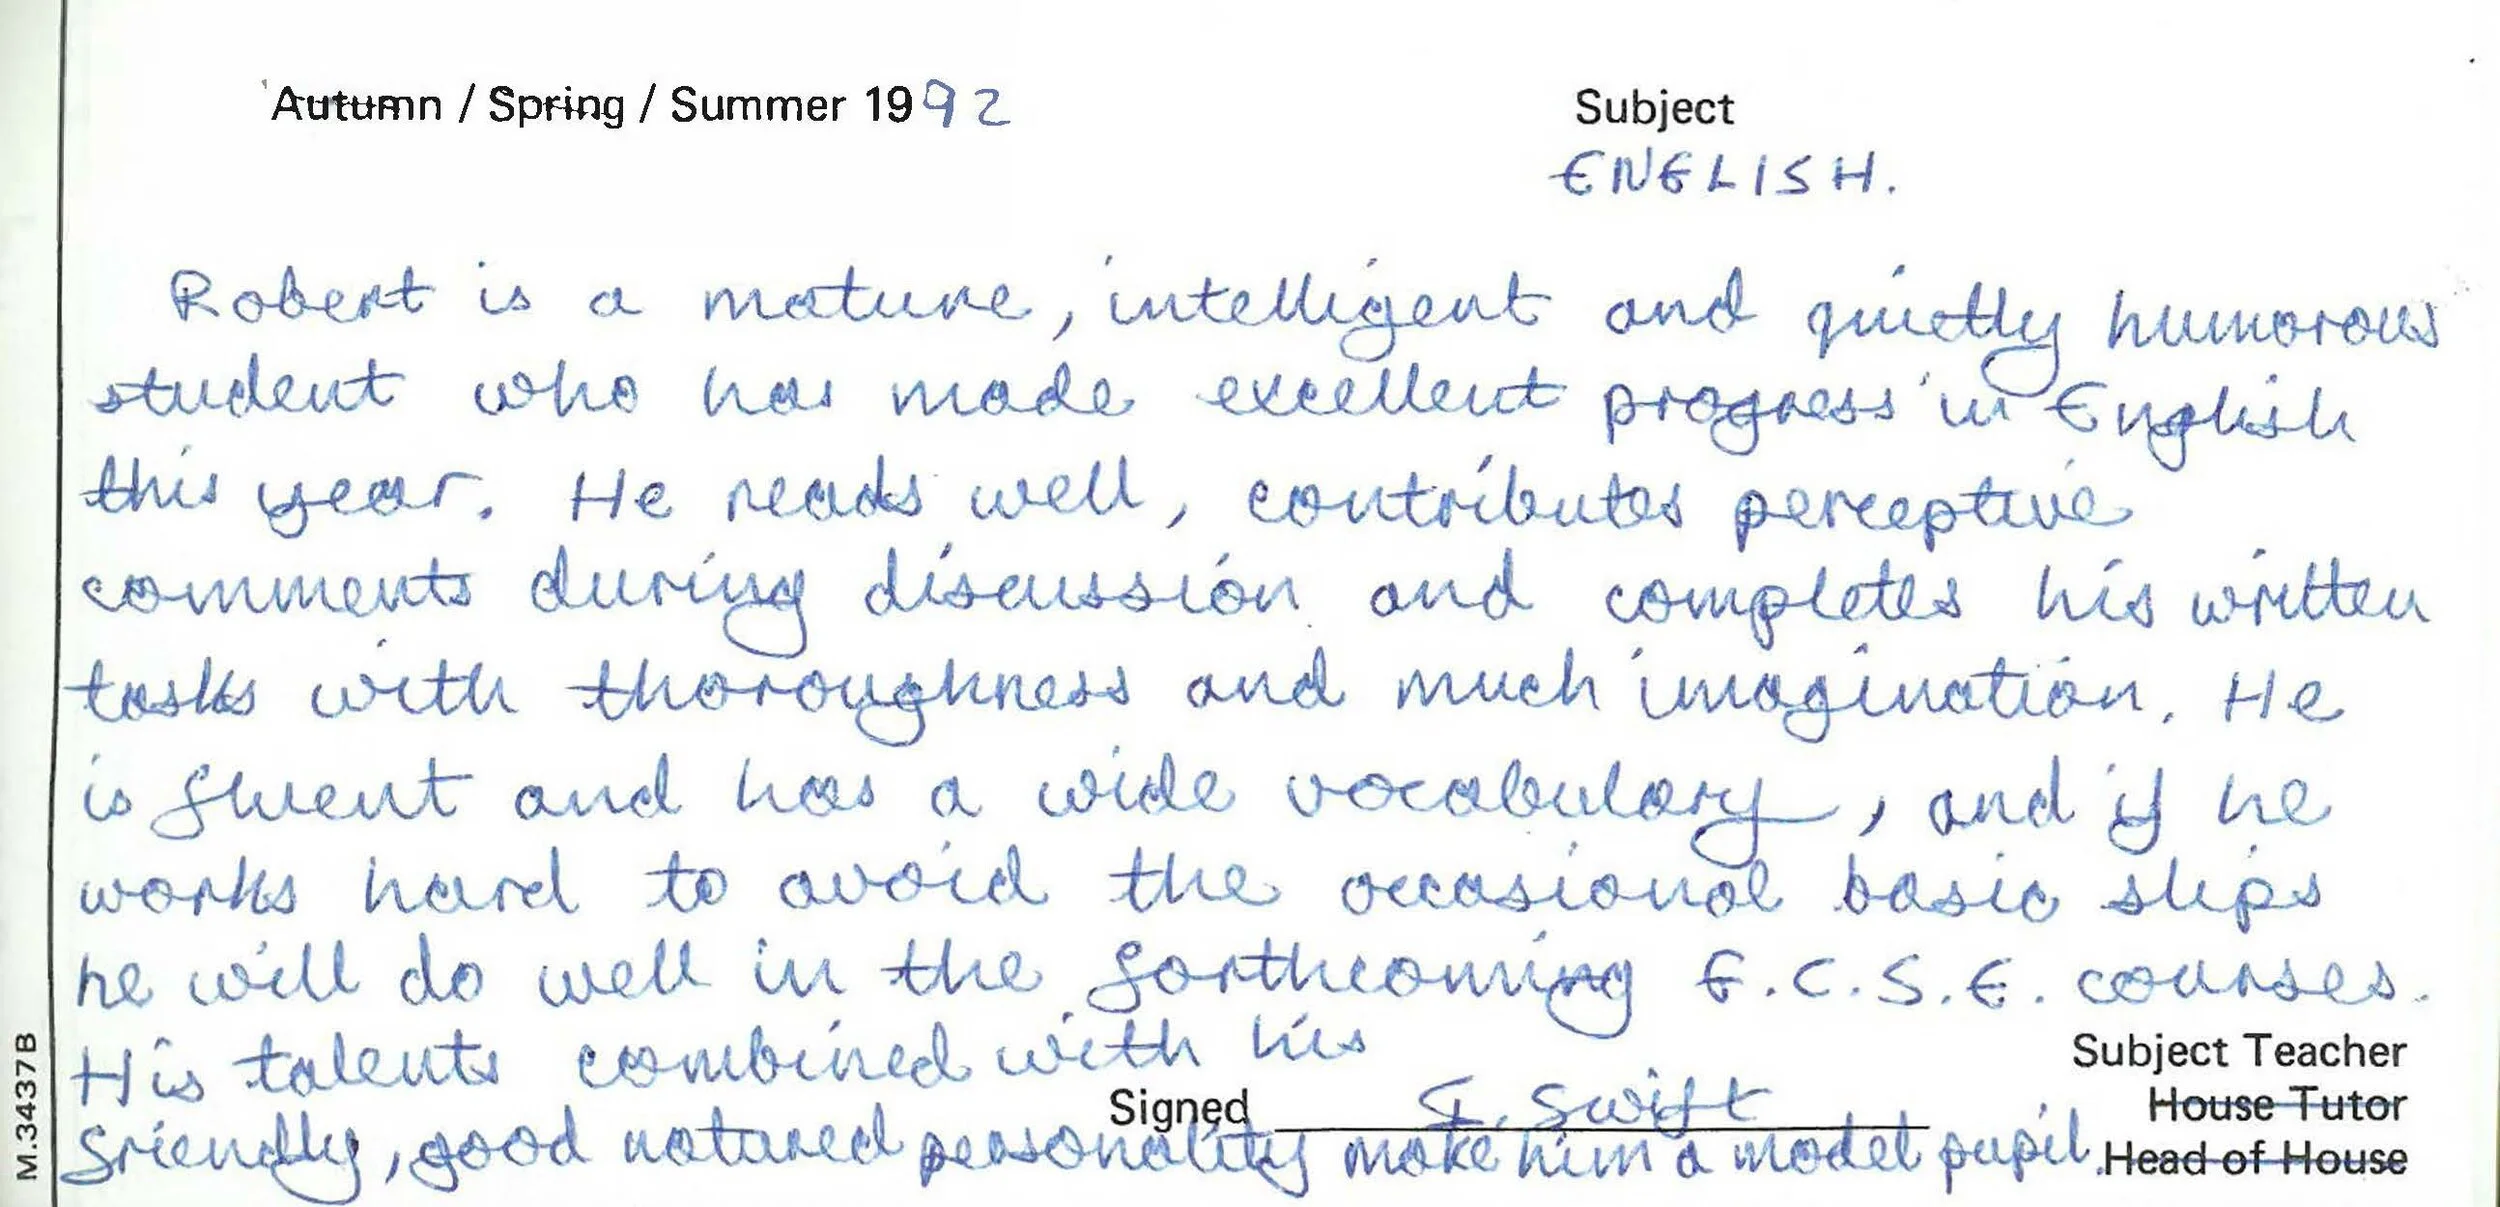 Autumn / Spring / Summer 1992
Subject
ENGLISH.
Robert is a mature, intelligent and quietly humorous
student who has made excellent progress in English
this year. He reads well, contributes perceptive
comments during discussion and completes his written
tasks with thoroughness and much imagination. He
is fluent and has a wide vocabulary, and if he
works hard to avoid the occasional basic slips
he will do well in the forthcoming G.C.S.E. courses.
His talents combined with his
friendly, good natured personality make him a model pupil.
Signed Swift
Subject Teacher
House Tutor
Head of House
M.3437B